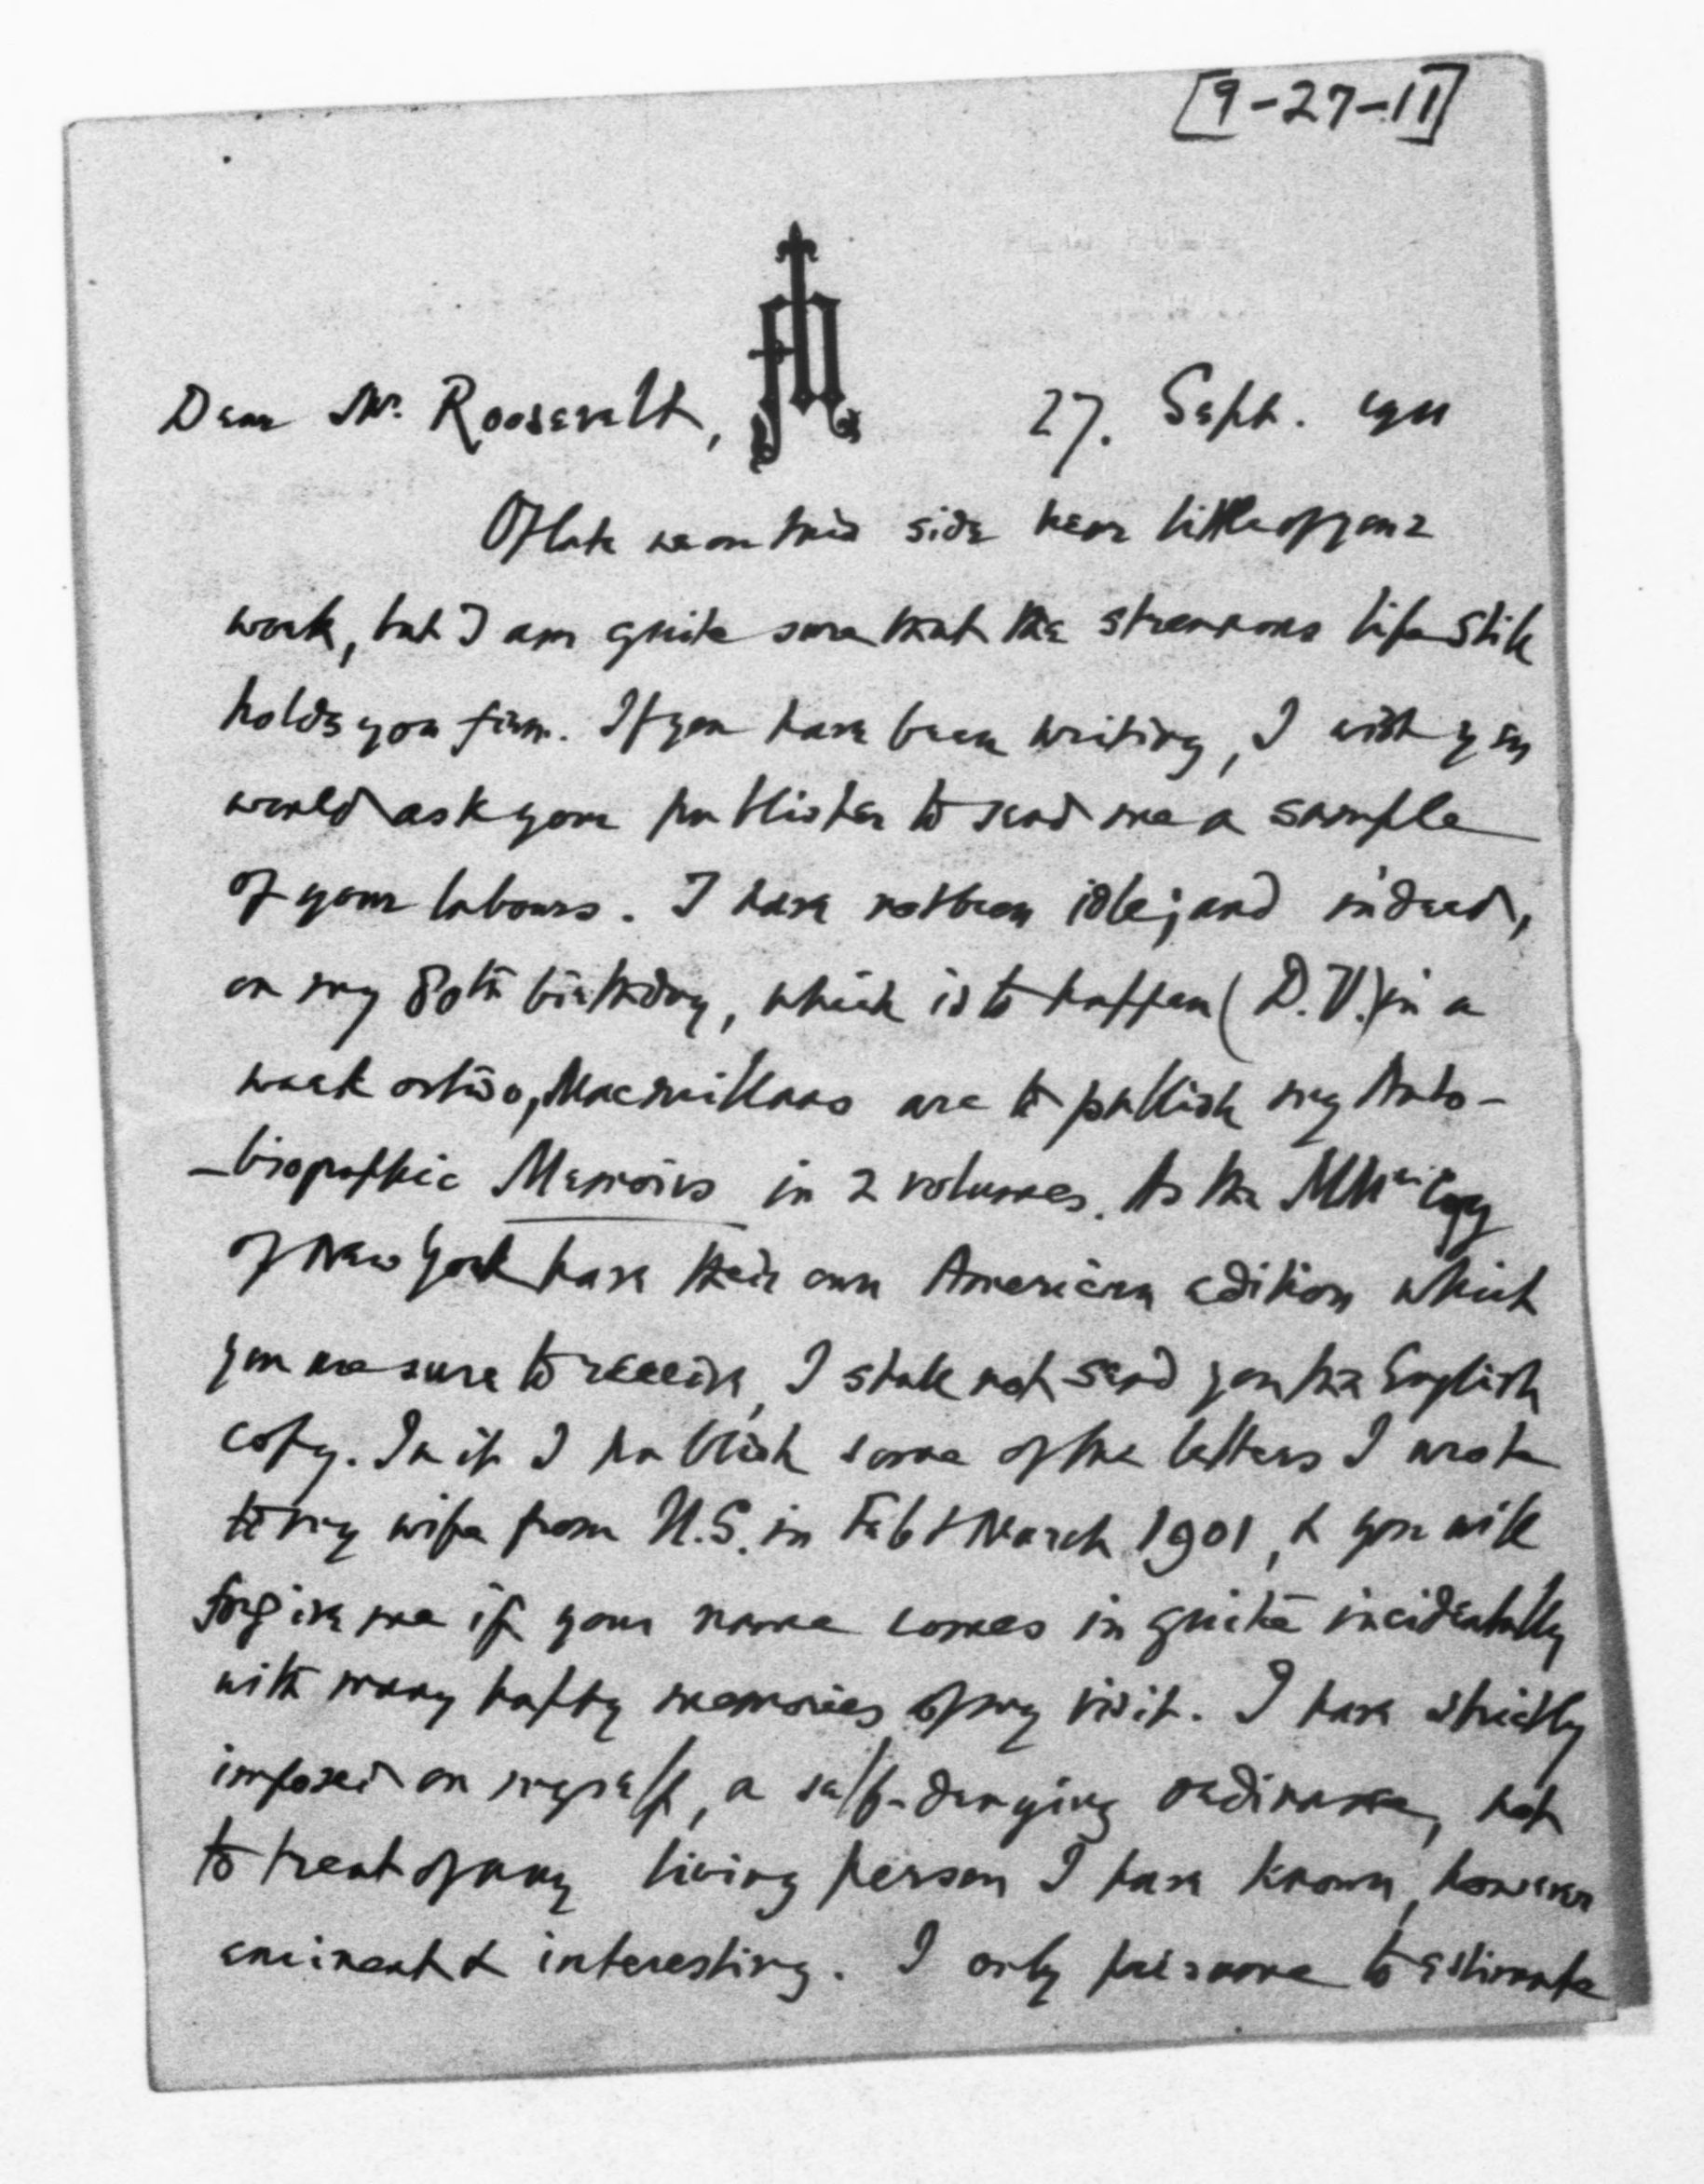 [9-27-11]
Dear Mr. Roosevelt,
27. Sept. 1911
Of late we on this side hear little of your
work, but I am quite sure that the strenuous life still
holds you firm. If you have been writing, I wish you
would ask your publisher to send me a sample
of your labours. I have not been idle; and indeed,
on my 80th birthday, which is to happen (D.V.) in a
week or two, Macmillans are to publish my Auto-
-biographic Memoirs in 2 volumes. As the MMn Copy
of New York have their own American edition which
you are sure to receive, I shall not send you the English
copy. In it I publish some of the letters I wrote
to my wife from U.S. in Feb & March 1901, & you will
forgive me if your name comes in quite incidentally
with many happy memories of my visit. I have strictly
imposed on myself, a self-denying ordinance, not
to treat of any living person I have known, however
eminent & interesting. I only presume to estimate